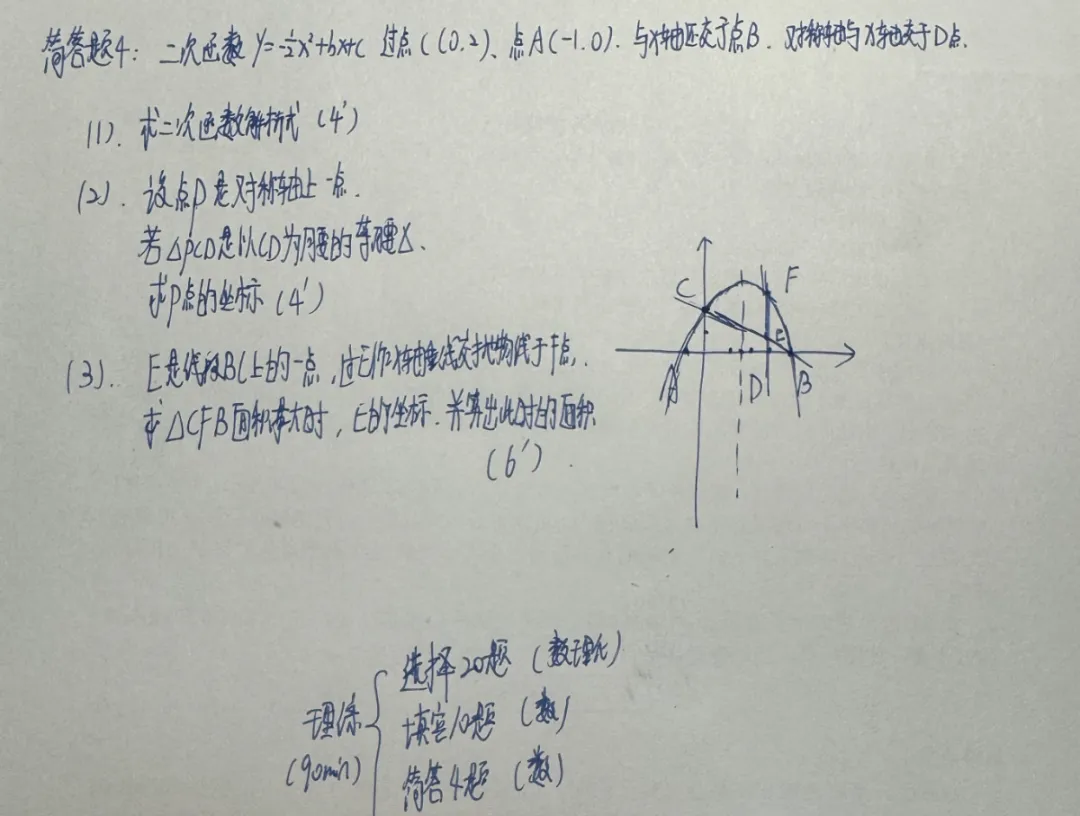 简答题4: 二次函数 y=-½x²+bx+c 过点C(0.2)、点A(-1.0). 与x轴还交于点B. 对称轴与x轴交于D点.
(1). 求二次函数解析式 (4′)
(2). 设点P是对称轴上一点.
若△PCD是以CD为腰的等腰△.
求P点的坐标 (4′)
(3). E是线段BC上的一点, 过E作x轴垂线交抛物线于F点.
求△CFB面积最大时, E的坐标. 并算出此时的面积
(6′).
C
F
E
A
D
B
理综
(90min)
选择20题 (数理化)
填空10题 (数)
简答4题 (数)